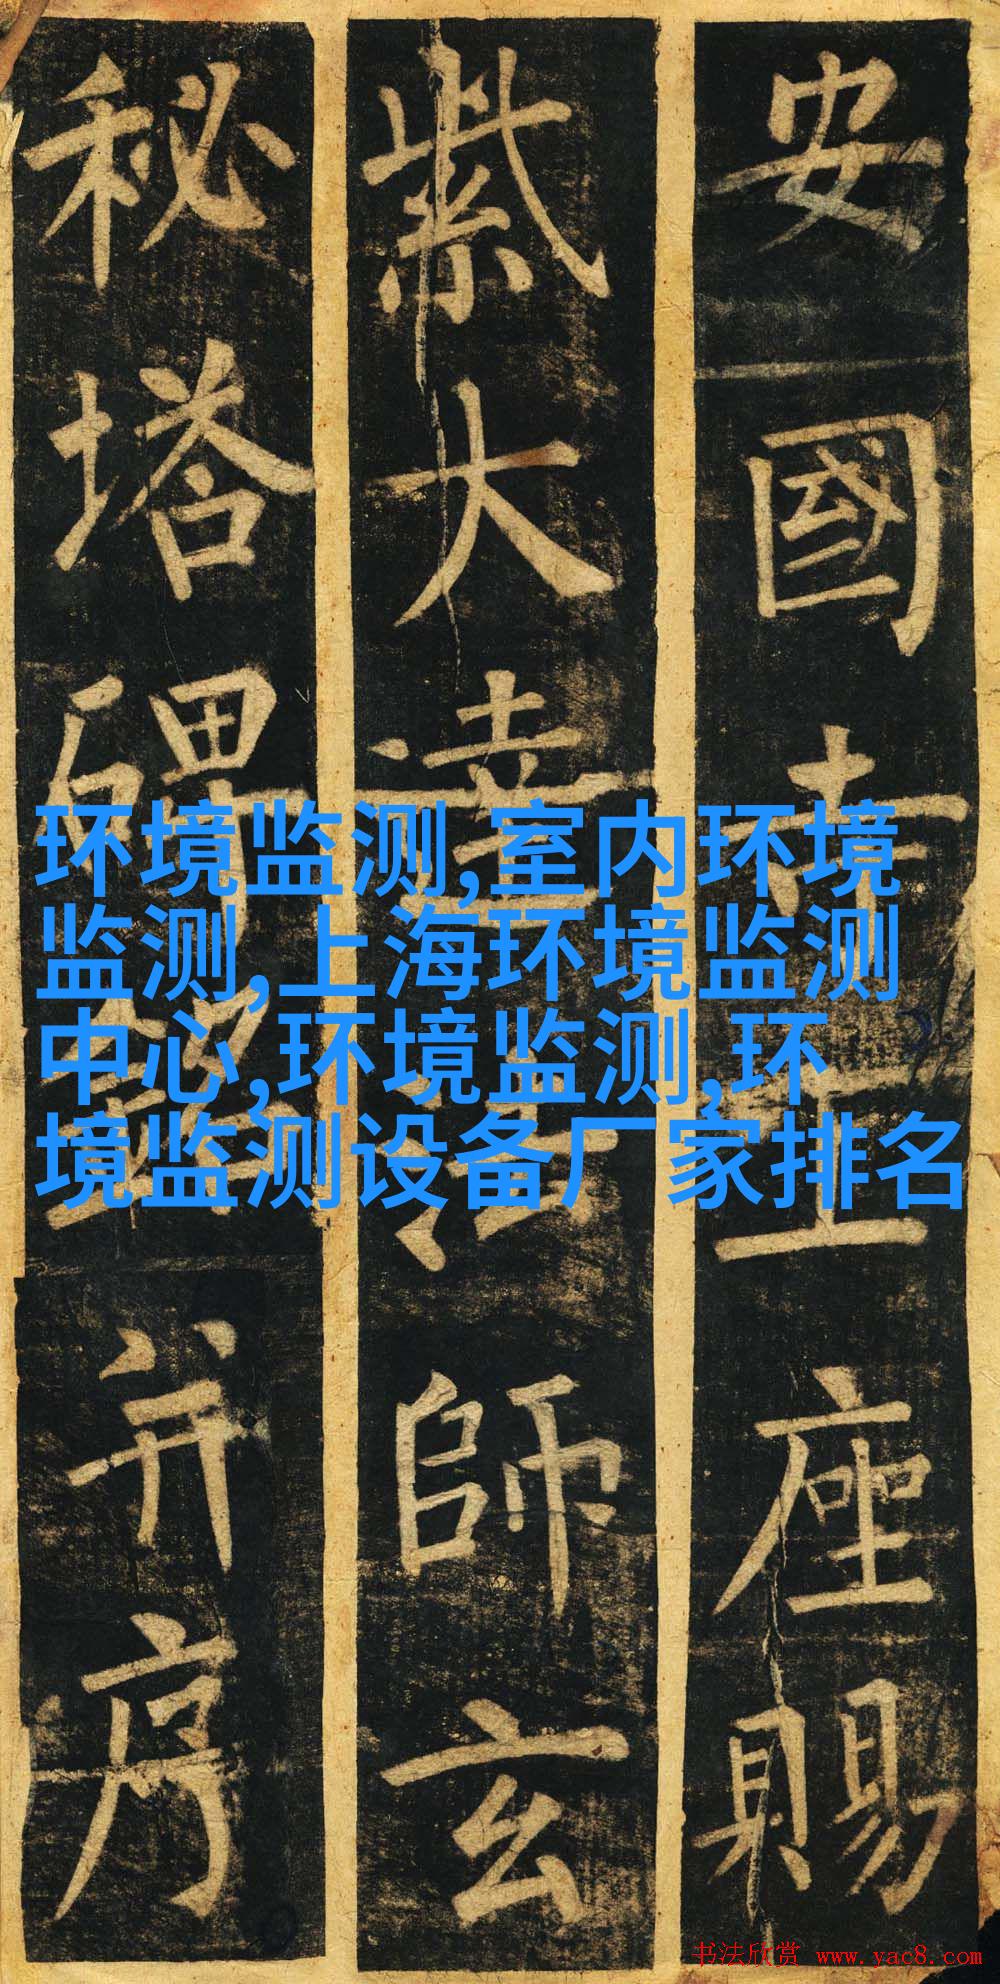 安國寺上座賜
紫大達法師玄
秘塔碑銘并序
环境监测,室内环境
监测,上海环境监测
中心,环境监测,环
境监测设备厂家排名
书法欣赏 www.yac8.com